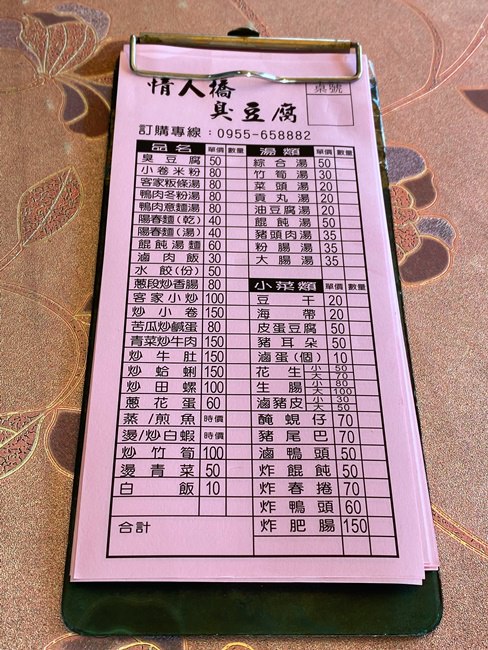 情人橋
臭豆腐
桌號
訂購專線：0955-658882
品名 單價 數量
臭豆腐 50
小卷米粉 80
客家粄條湯 80
鴨肉冬粉湯 80
鴨肉意麵湯 80
陽春麵(乾) 40
陽春麵(湯) 40
餛飩湯麵 60
滷肉飯 30
水餃(份) 50
蔥段炒香腸 80
客家小炒 100
炒小卷 150
苦瓜炒鹹蛋 80
青菜炒牛肉 150
炒牛肚 150
炒蛤蜊 150
炒田螺 100
蔥花蛋 60
蒸/煎魚 時價
燙/炒白蝦 時價
炒竹筍 100
燙青菜 50
白飯 10
合計
湯類 單價 數量
綜合湯 50
竹筍湯 30
菜頭湯 20
貢丸湯 20
油豆腐湯 20
餛飩湯 50
豬頭肉湯 35
粉腸湯 35
大腸湯 35
小菜類 單價 數量
豆干 20
海帶 20
皮蛋豆腐 50
豬耳朵 50
滷蛋(個) 10
花生 小 50
大 70
生腸 小 80
大 100
滷豬皮 小 30
大 50
醃蜆仔 70
豬尾巴 70
滷鴨頭 50
炸餛飩 50
炸春捲 70
炸鴨頭 60
炸肥腸 150